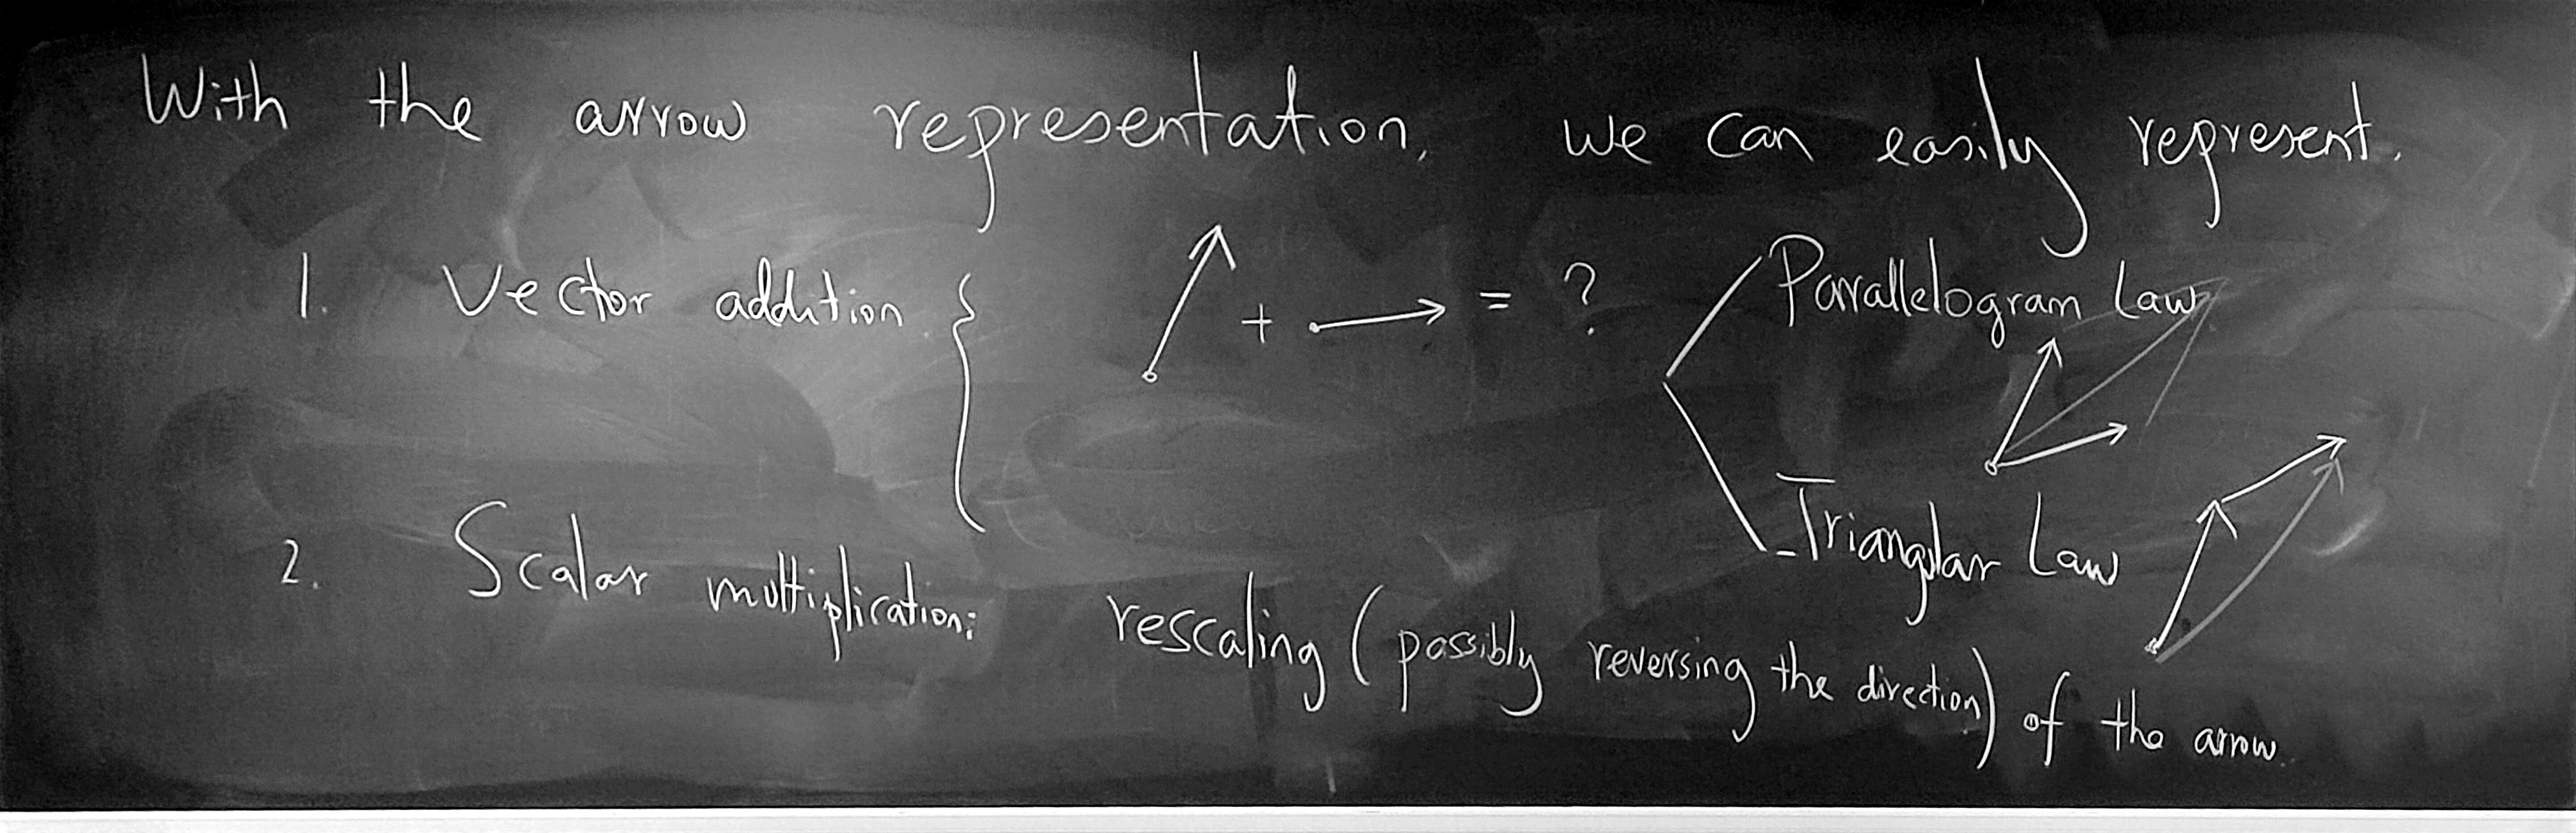 With the arrow representation, we can easily represent.
1. Vector addition { + = ? Parallelogram Law
Triangular Law
2. Scalar multiplication: rescaling (possibly reversing the direction) of the arrow.